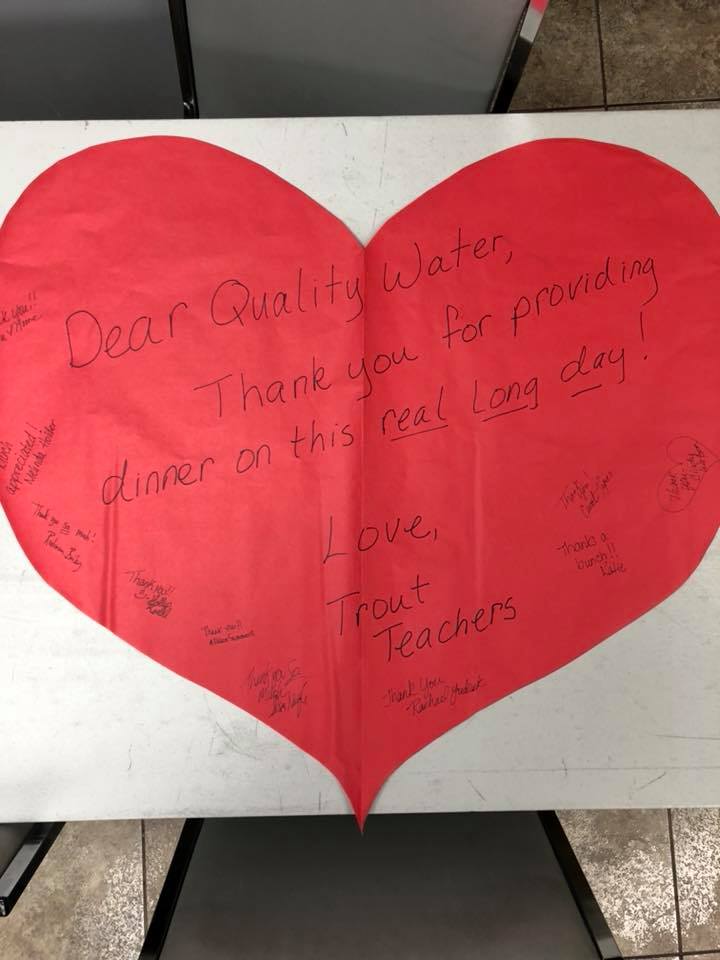 Dear Quality Water,
Thank you for providing
dinner on this real long day!
Love,
Trout
Teachers
k you!!
Moore
appreciated!
Melinda
Thank you so much!
Thank You!!
Thank you!!
Thank you so
much
Thank You
Rachael
Thank you!
Thanks a
bunch!!
Katie
Thank
you